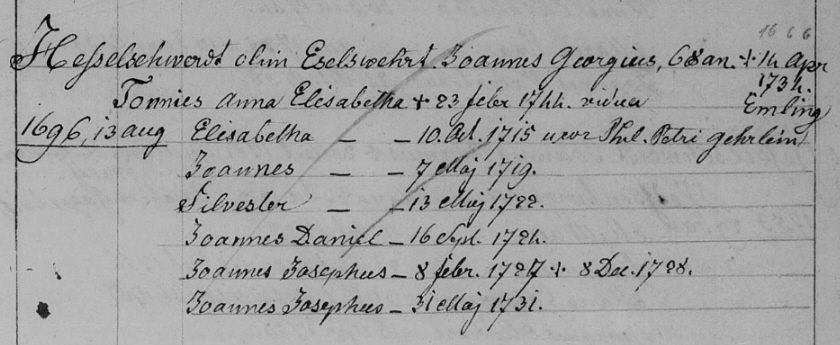 1666
Hesselschwerdt olim Eselswehrt. Joannes Georgius, 68 an. + 14 Apr
1734.
Tonnies Anna Elisabetha + 23 febr 1744. vidua Emling
1696, 13 aug Elisabetha — — 10. Oct. 1715 uxor Phil. Petri Gehrlein
Joannes — — 7 Maij 1719.
Silvester — — 13 Maij 1722.
Joannes Daniel — 16 Sept. 1724.
Joannes Josephus — 8 febr. 1727 + 8 Dec. 1728.
Joannes Josephus — 31 Maij 1731.